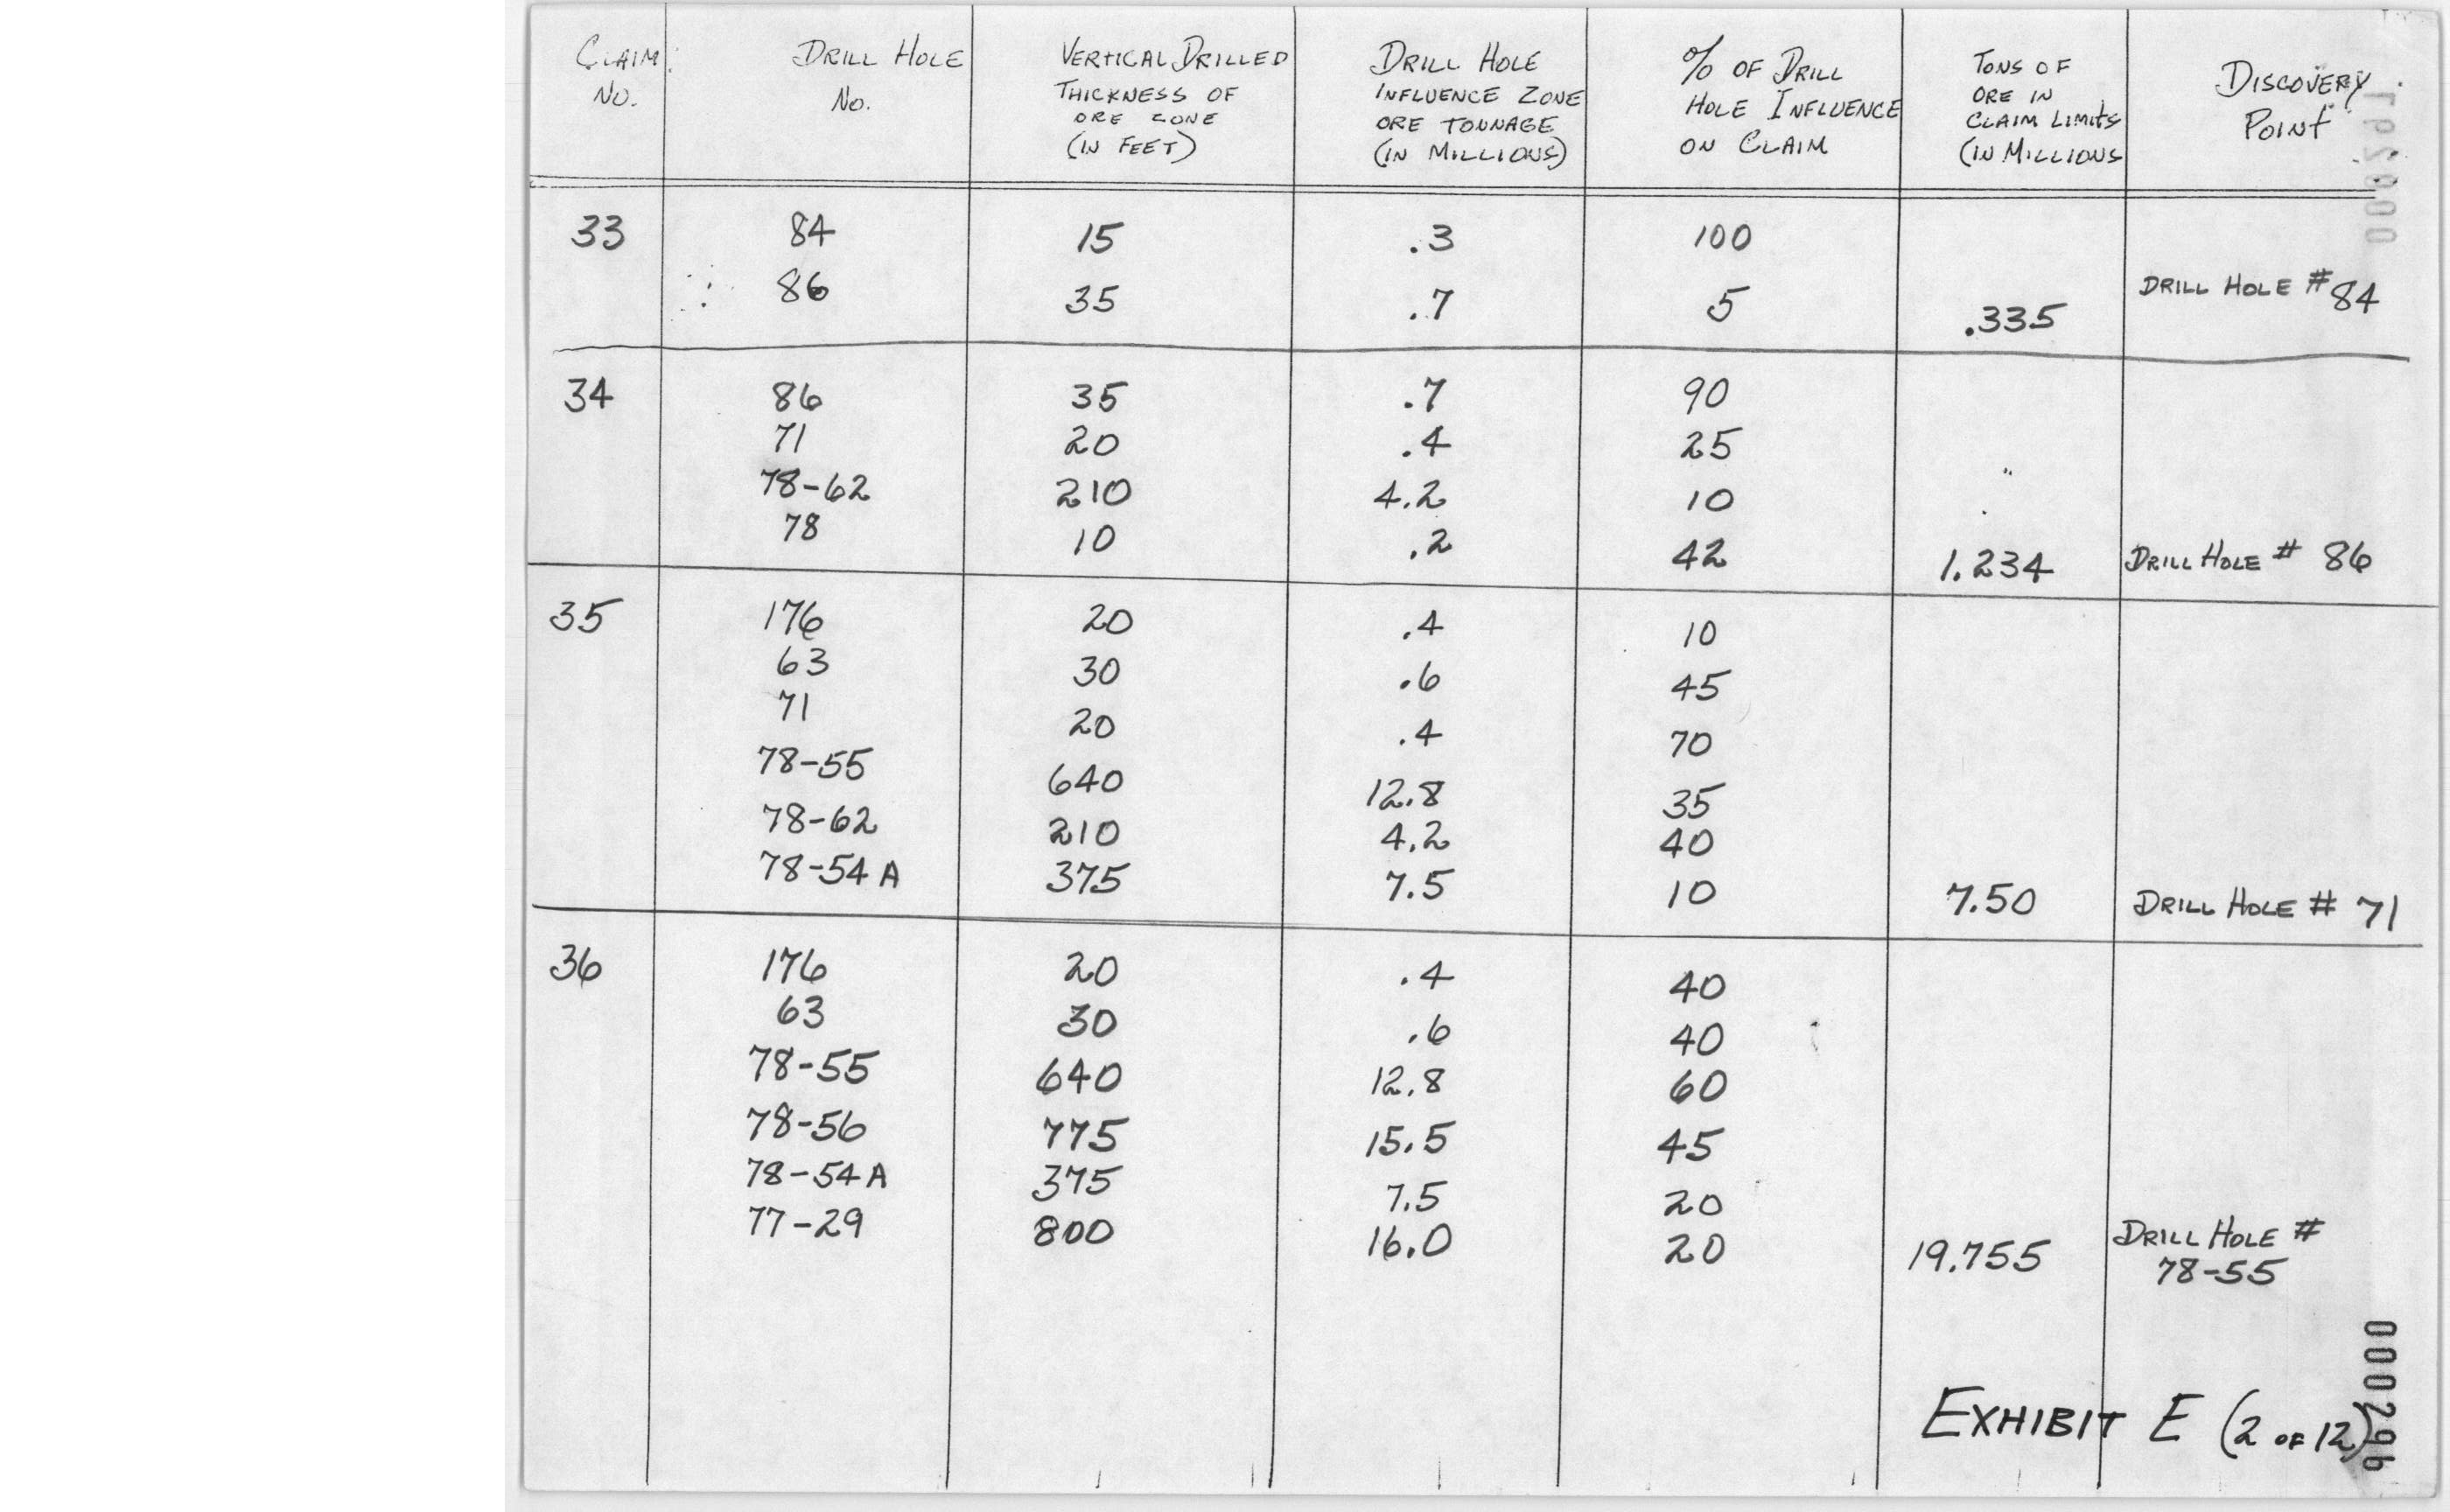 CLAIM No. DRILL HOLE No. VERTICAL DRILLED THICKNESS OF ORE ZONE (IN FEET) DRILL HOLE INFLUENCE ZONE ORE TONNAGE (IN MILLIONS) % OF DRILL HOLE INFLUENCE ON CLAIM TONS OF ORE IN CLAIM LIMITS (IN MILLIONS DISCOVERY POINT
33 84 15 .3 100
86 35 .7 5 .335 DRILL HOLE # 84
34 86 35 .7 90
71 20 .4 25
78-62 210 4.2 10
78 10 .2 42 1.234 DRILL HOLE # 86
35 176 20 .4 10
63 30 .6 45
71 20 .4 70
78-55 640 12.8 35
78-62 210 4.2 40
78-54 A 375 7.5 10 7.50 DRILL HOLE # 71
36 176 20 .4 40
63 30 .6 40
78-55 640 12.8 60
78-56 775 15.5 45
78-54 A 375 7.5 20
77-29 800 16.0 20 19.755 DRILL HOLE # 78-55
EXHIBIT E (2 OF 12)
000296